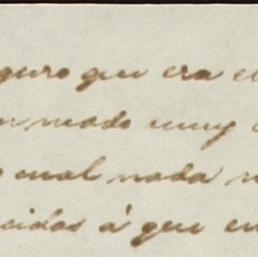 guro que era e
n modo muy
cual nada
cidos á que en